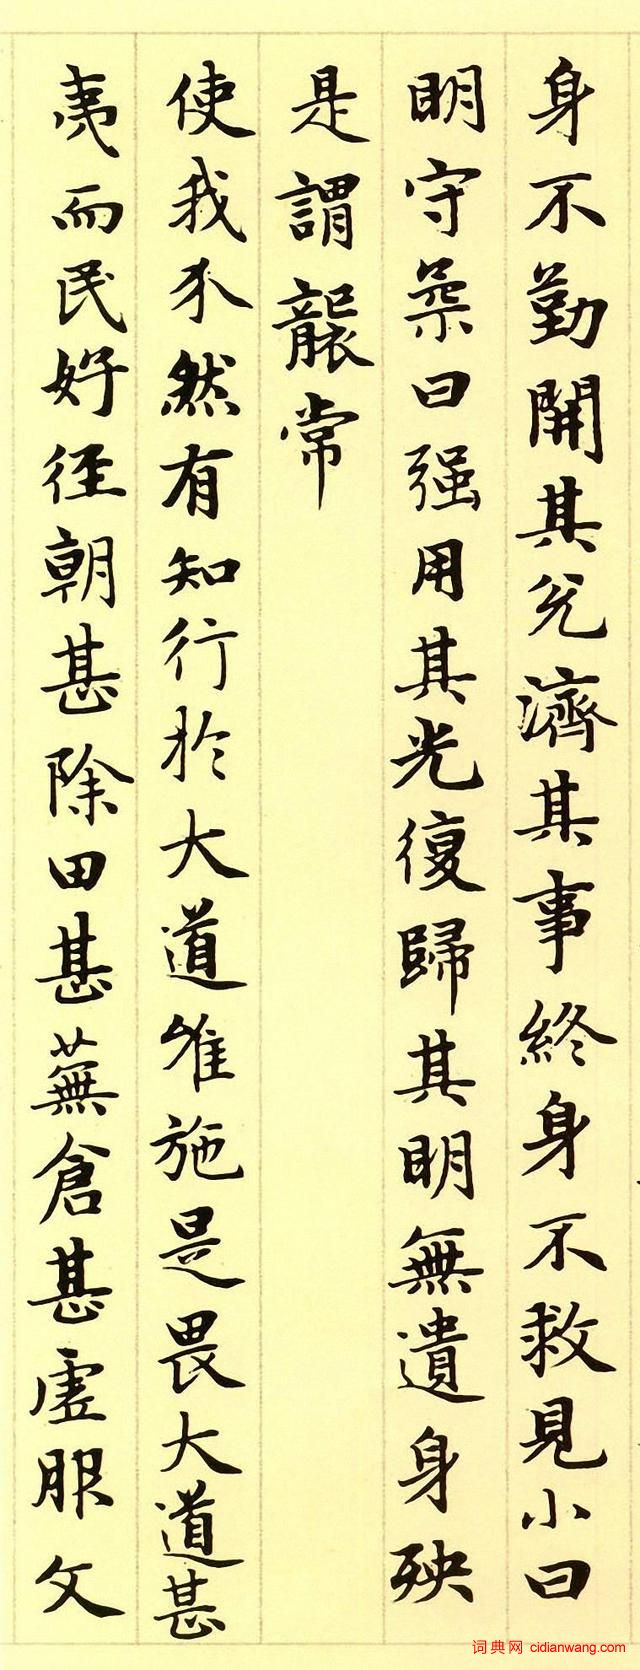 身不勤開其兌濟其事終身不救見小曰
明守柔曰强用其光復歸其明無遺身殃
是謂襲常
使我介然有知行於大道唯施是畏大道甚
夷而民好徑朝甚除田甚蕪倉甚虛服文
词典网 cidianwang.com